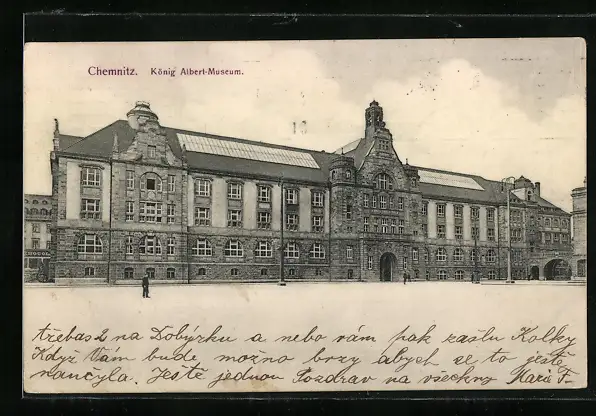 Chemnitz. König Albert-Museum.
třebas 2 na Dobýrku a nebo vám pak zašlu Kolky
Když Vám bude možno brzy abych se to ještě
naučyla. Ještě jednou Pozdrav na všecky Marie F.